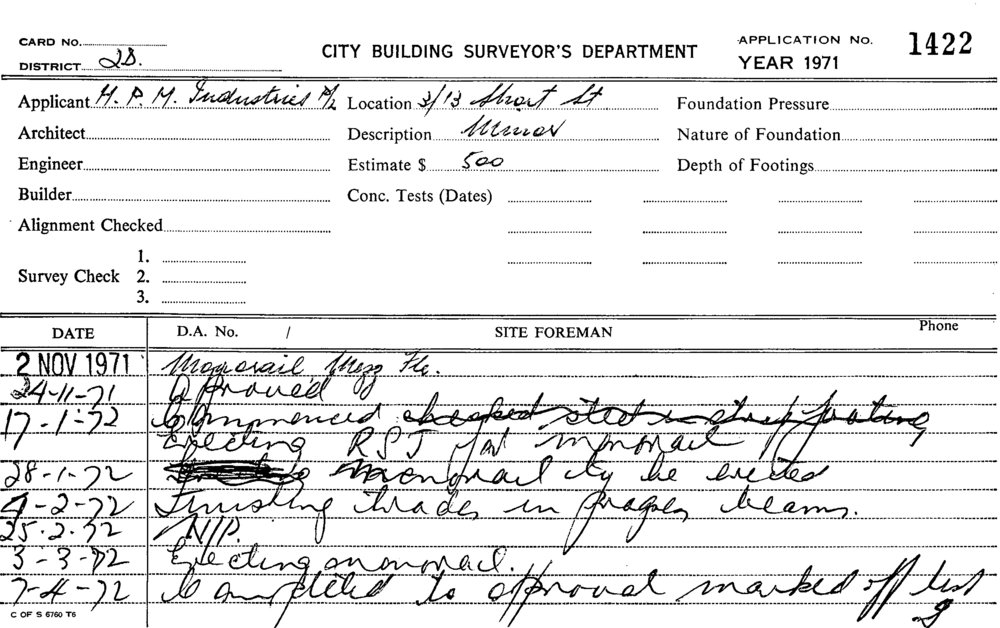 CARD No.
CITY BUILDING SURVEYOR'S DEPARTMENT
APPLICATION No. 1422
DISTRICT 2B.
YEAR 1971
Applicant H. P. M. Industries P/L Location 3/13 Short St Foundation Pressure
Architect Description Minor Nature of Foundation
Engineer Estimate $ 500 Depth of Footings
Builder Conc. Tests (Dates)
Alignment Checked
1.
Survey Check 2.
3.
DATE D.A. No. / SITE FOREMAN Phone
2 NOV 1971 Monorail Mezz Flr.
24-11-71 Approved
17-1-72 Commenced checked steel in strip footing
Erecting RSJ for monorail
28-1-72 monorail to be erected
4-2-72 Finishing trades in progress beams.
25.2.72 N/P.
3-3-72 Erecting monorail.
7-4-72 Completed to approval marked off list
C OF S 6760 T6